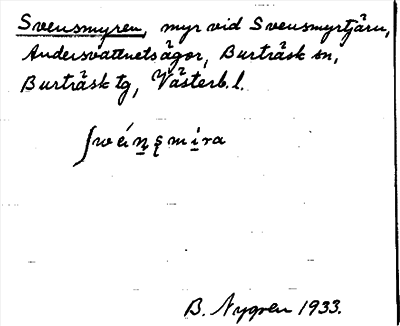 Svensmyren, myr vid Svensmyrtjärn,
Andersvattnetsägor, Burträsk sn,
Burträsk tg, Västerb. l.
ʃwéi̯n̥s̨mi̱ra
B. Nygren 1933.